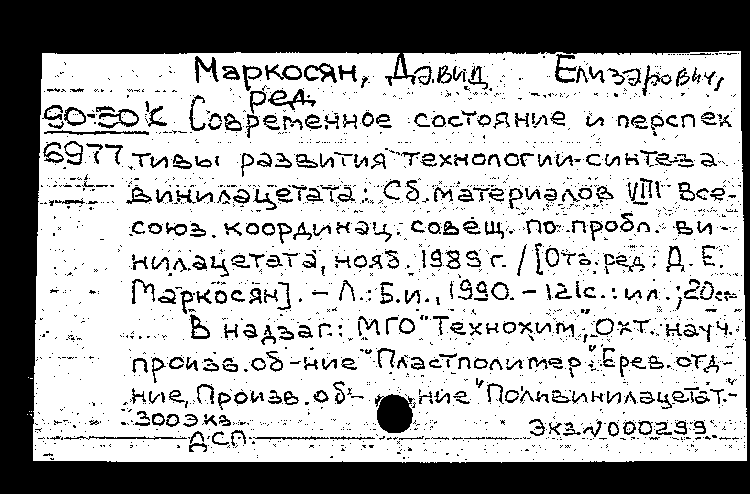 Маркосян, Давид Елизарович,
ред.
90-50К Современное состояние и перспек
6977 тивы развития технологии синтеза
винилацетата: Сб. материалов VIII Все-
союз. координац. совещ. по пробл. ви-
нилацетата, нояб. 1989 г. / [Отв. ред.: Д. Е.
Маркосян]. - Л.: Б.и., 1990. - 121с.: ил.; 20см
В надзаг.: МГО "Технохим", Охт. науч.
произв. об-ние "Пластполимер". Ерев. отд-
ние, Произв. об-ние "Поливинилацетат".-
300 экз.
ДСП. Экз. N 000299.